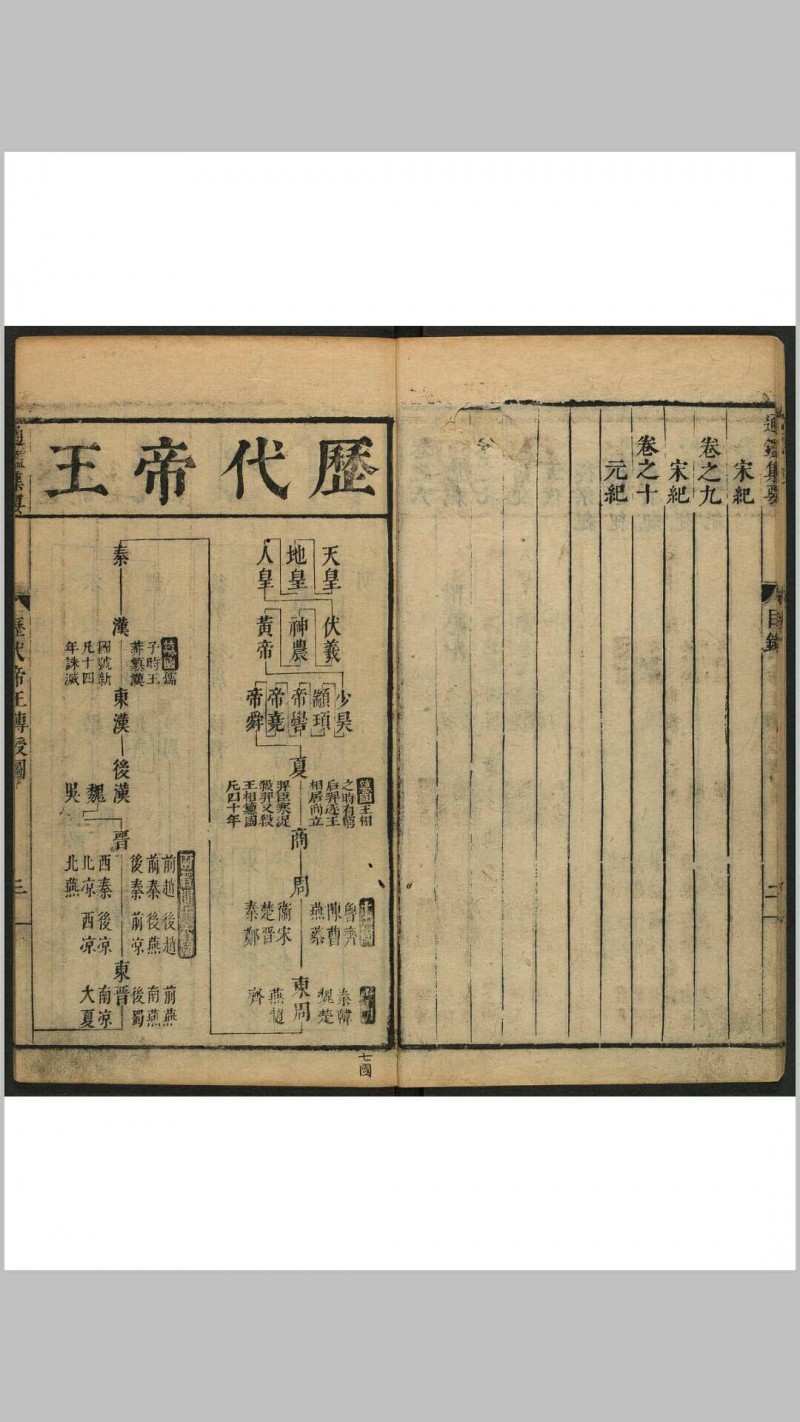 宋紀
卷之九
宋紀
卷之十
元紀
通鑑集要
目錄
二
歷代帝王
天皇
地皇
人皇
伏羲
神農
黃帝
少昊
顓頊
帝嚳
帝堯
帝舜
夏
王相
之時有窮
后羿逐王
相居商立
羿臣寒浞
殺羿又殺
王相纂國
凡四十年
商
周
魯齊
陳曹
燕蔡
衞宋
楚晉
秦鄭
東周
秦韓
魏楚
燕趙
齊
七國
秦
漢
孺
子時王
莽纂漢
國號新
凡十四
年誅滅
東漢
後漢
魏
吳
晉
前趙 後趙 前燕
前秦 後燕 南燕
後秦 前凉 後蜀
東晉
西秦 後凉 南凉
北凉 西凉 大夏
北燕
通鑑集要
歷代帝王傳授圖
三